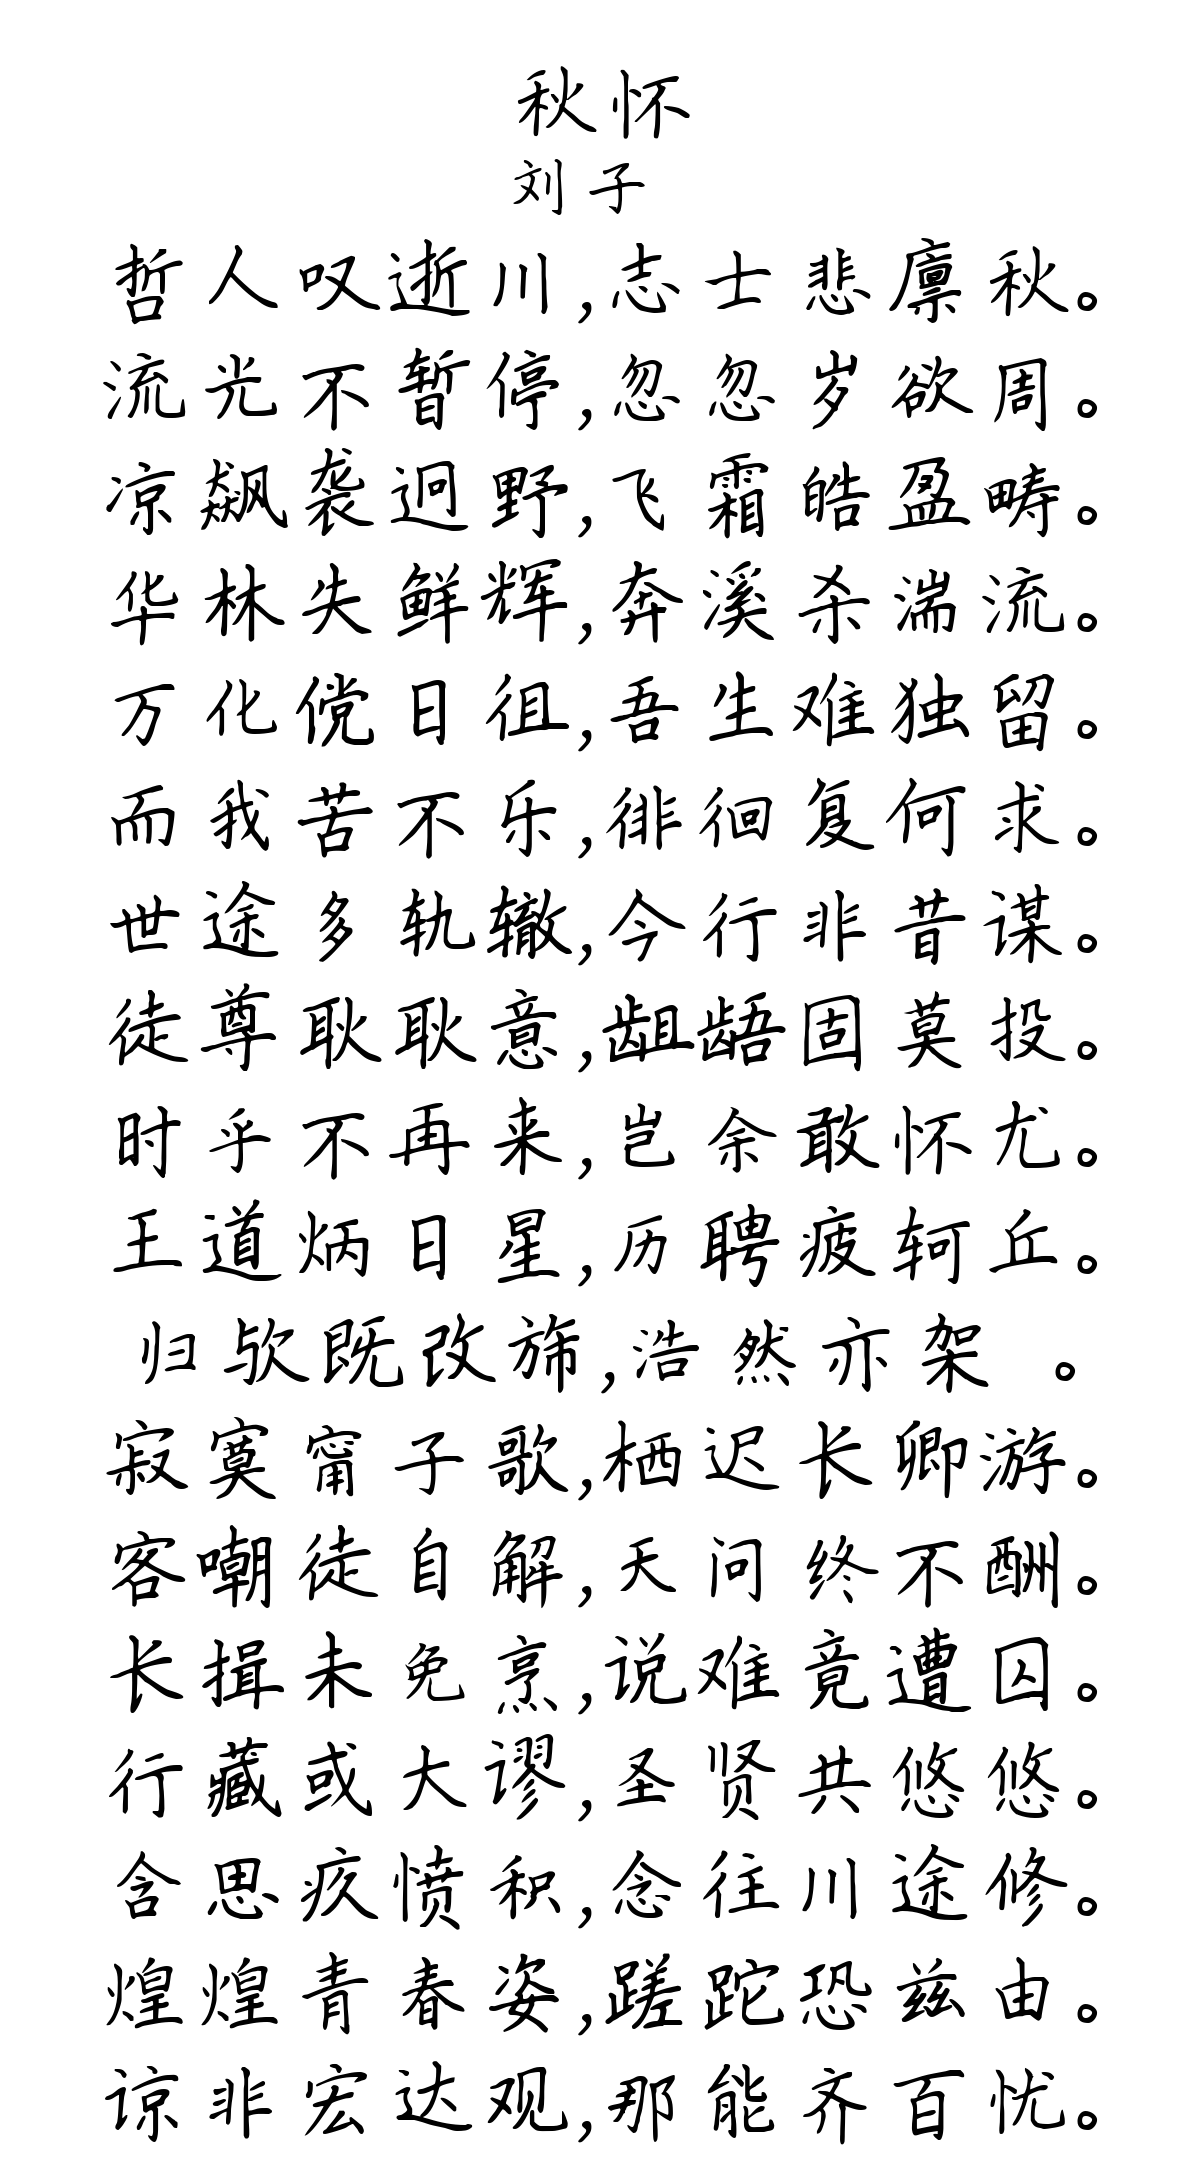 秋怀
刘子
哲人叹逝川,志士悲廪秋。
流光不暂停,忽忽岁欲周。
凉飙袭迥野,飞霜皓盈畴。
华林失鲜辉,奔溪杀湍流。
万化傥日徂,吾生难独留。
而我苦不乐,徘徊复何求。
世途多轨辙,今行非昔谋。
徒尊耿耿意,龃龉固莫投。
时乎不再来,岂余敢怀尤。
王道炳日星,历聘疲轲丘。
归欤既改旆,浩然亦架 。
寂寞甯子歌,栖迟长卿游。
客嘲徒自解,天问终不酬。
长揖未免烹,说难竟遭囚。
行藏或大谬,圣贤共悠悠。
含思疚愤积,念往川途修。
煌煌青春姿,蹉跎恐兹由。
谅非宏达观,那能齐百忧。